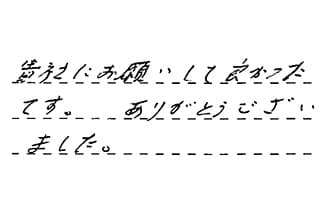 貴社にお願いして良かった
です。　ありがとうござい
ました。